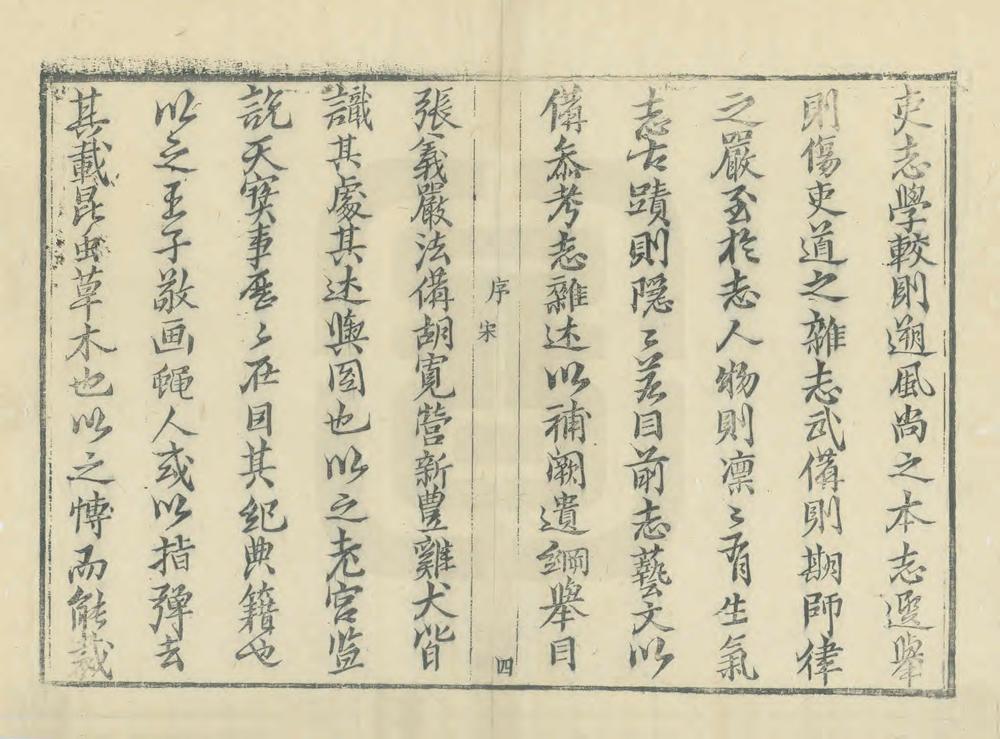 吏志學較則遡風尚之本志選舉
則傷吏道之雜志武備則期師律
之嚴至於志人物則凛〻有生氣
志古蹟則隠〻若目前志藝文以
備叅考志雜述以補闕遺綱舉目
序 宋
四
張義嚴法備胡寬營新豊雞犬皆
識其處其述輿圖也以之老宮监
說天寶事歷〻在目其紀典籍也
以之王子敬画蝇人或以指彈去
其載昆虫草木也以之慱而能裁